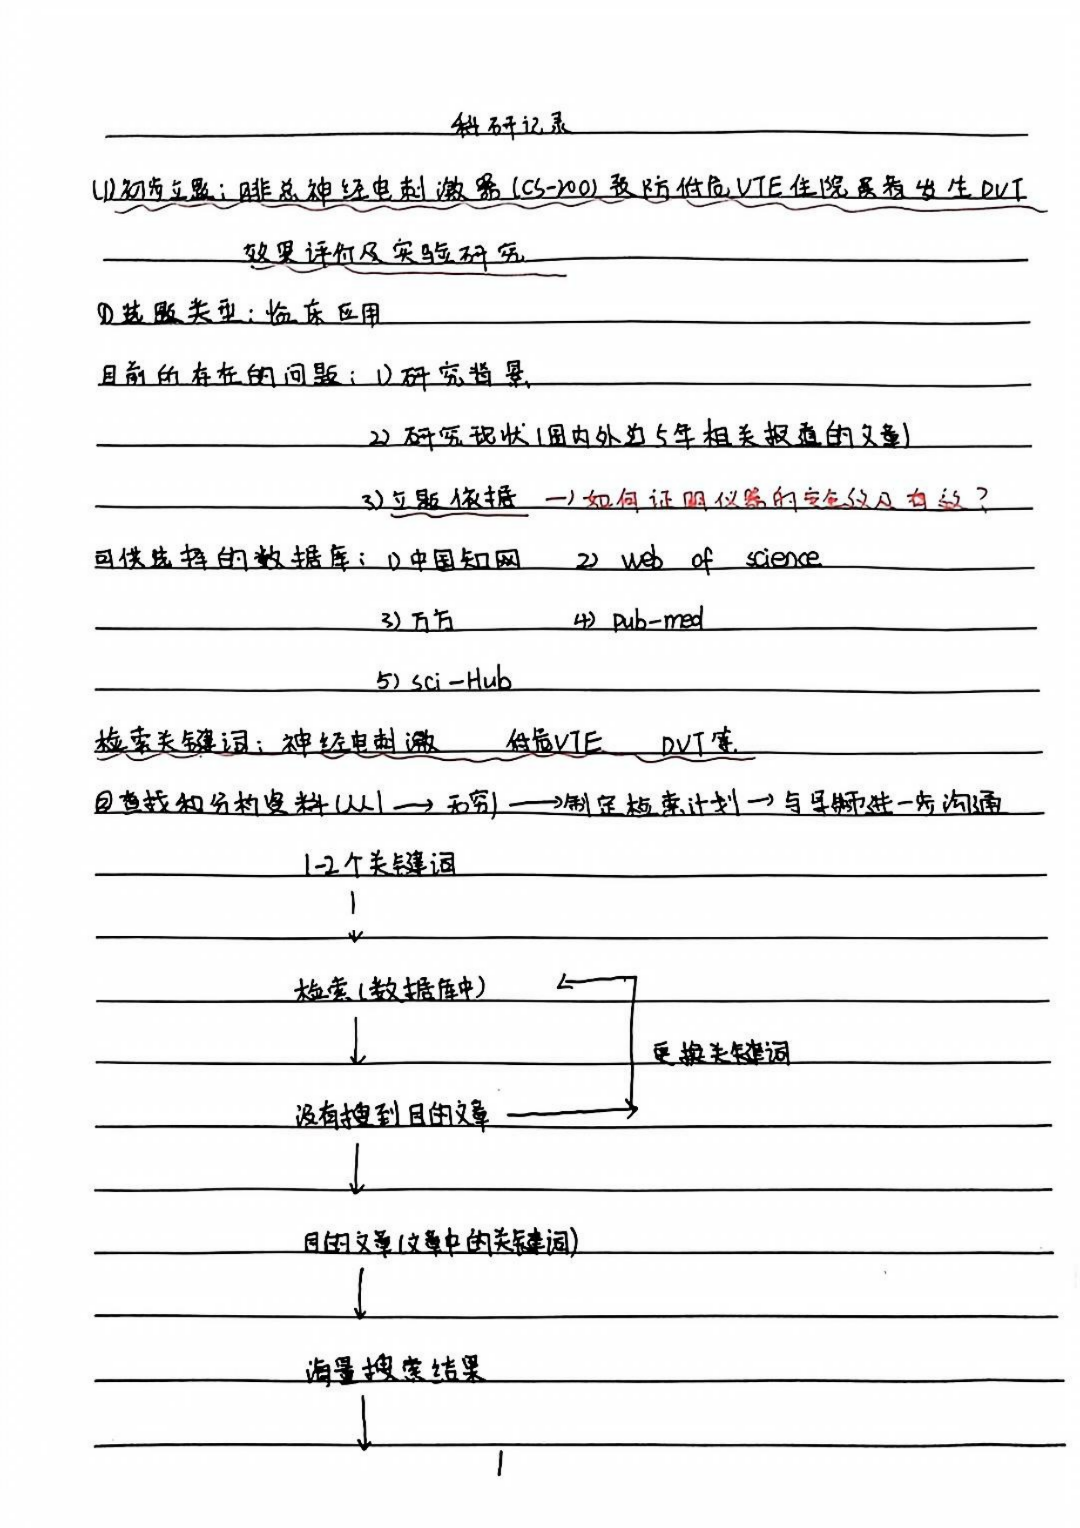 科研记录
(1)初步立题：腓总神经电刺激器(CS-200)预防低危VTE住院患者发生DVT
效果评价及实验研究
①选题类型：临床应用
目前的存在的问题：1)研究背景
2) 研究现状(国内外近5年相关报道的文章)
3)立题依据 →如何证明仪器的安全效及有效？
可供选择的数据库：1)中国知网 2) web of science
3)万方 4) pub-med
5) sci-Hub
检索关键词：神经电刺激 低危VTE DVT等
②查找和分析资料(从1→无穷)→制定检索计划→与导师进一步沟通
1-2个关键词
↓
检索(数据库中)
↓
更换关键词
没有搜到目的文章
↓
目的文章(文章中的关键词)
↓
海量搜索结果
↓
1